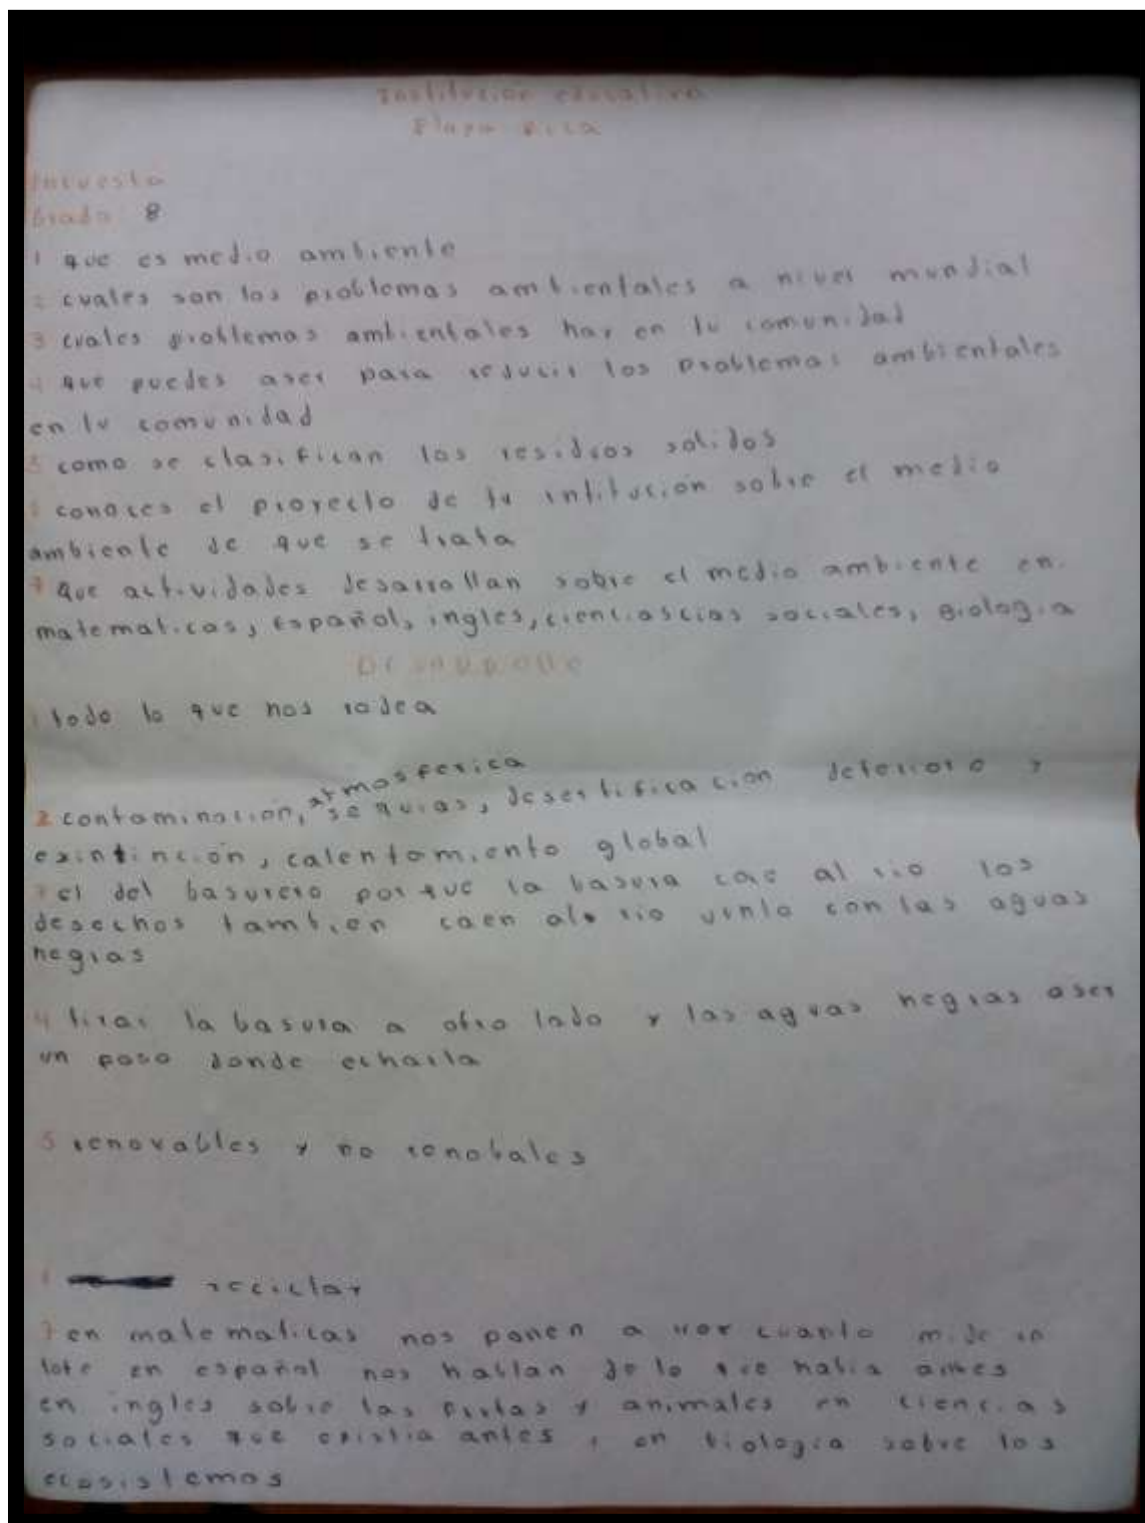 Institución educativa
Playa Rica
Encuesta
Grado 8
1 que es medio ambiente
2 cuales son los problemas ambientales a nivel mundial
3 cuales problemas ambientales hay en tu comunidad
4 que puedes aser para reducir los problemas ambientales
en tu comunidad
5 como se clasifican los residuos solidos
6 conoces el proyecto de tu intitución sobre el medio
ambiente de que se trata
7 que actividades desarrollan sobre el medio ambiente en
matematicas, español, ingles, cienciascias sociales, Biologia
Desarrollo
1 todo lo que nos rodea
atmosferica
2 contaminacion, sequias, desertificacion deterioro y
exintinción, calentamiento global
3 el del basurero porque la basura cae al rio los
desechos tambien caen alo rio unto con las aguas
negras
4 tirar la basura a otro lado y las aguas negras aser
un poso donde echarla
5 renovables y no renobales
6 reciclar
7 en matematicas nos ponen a ver cuanto mide un
lote en español nos hablan de lo que habia antes
en ingles sobre las frutas y animales en ciencias
sociales que existia antes, en biologia sobre los
ecosistemos